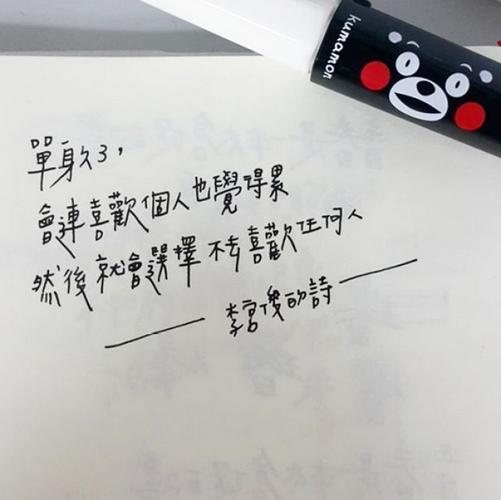 kumamon
單身久了，
會連喜歡個人也覺得累
然後就會選擇 不去喜歡任何人
—— 李宮俊的詩 ——